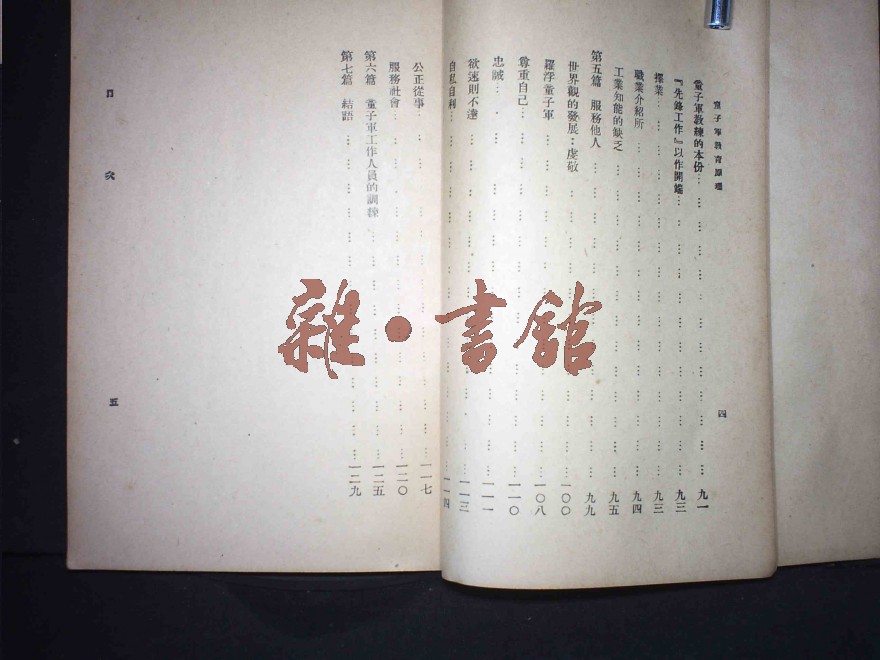 童子軍教育原理
童子軍教練的本份 九一
『先鋒工作』以作開端 九三
擇業 九三
職業介紹所 九四
工業知能的缺乏 九五
第五篇 服務他人 九九
世界觀的發展：虔敬 一〇〇
羅浮童子軍 一〇八
尊重自己 一一〇
忠誠 一一一
欲速則不達 一一三
自私自利 一一四
四
公正從事 一一七
服務社會 一二〇
第六篇 童子軍工作人員的訓練 一二五
第七篇 結語 一二九
目次
五
雜·書館